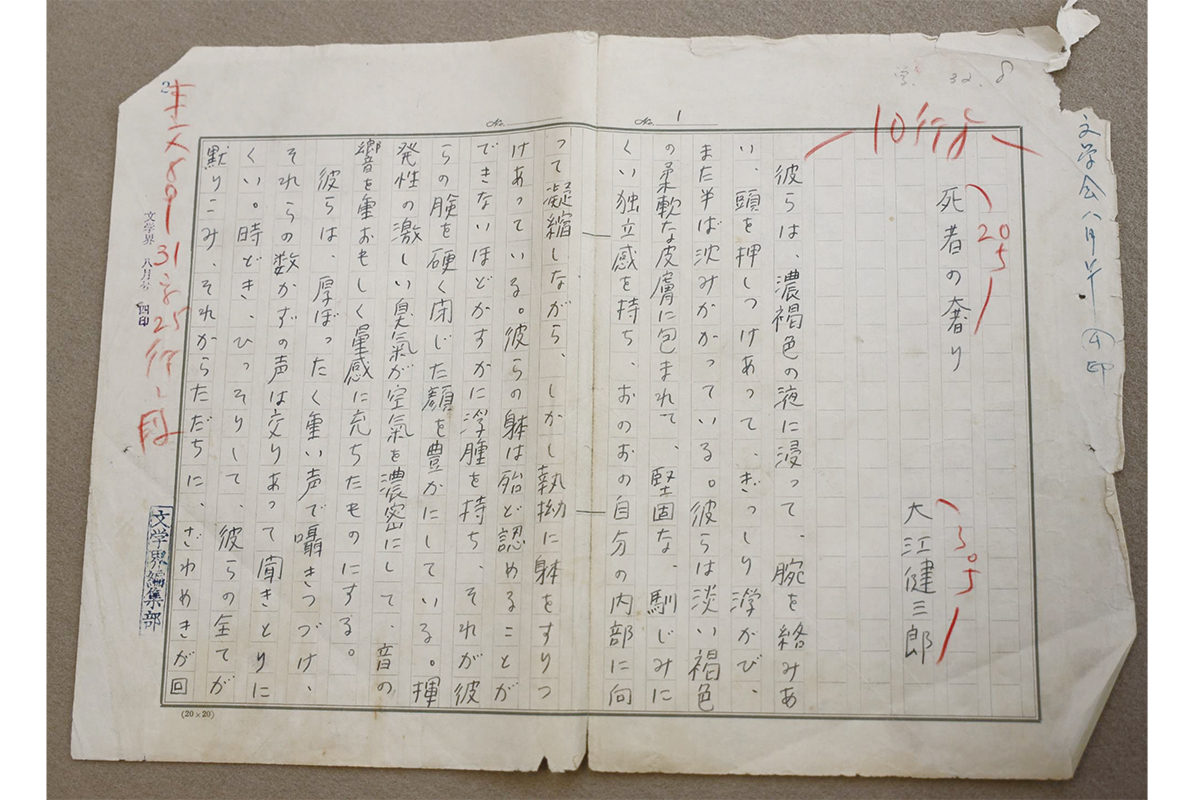 学. 32. 8
文学会八月号 ④印
10行分
死者の奢り
20
5
大江健三郎
No. 1
彼らは、濃褐色の液に浸って、腕を絡みあ
い、頭を押しつけあって、ぎっしり浮かび、
また半ば沈みかかっている。彼らは淡い褐色
の柔軟な皮膚に包まれて、堅固な、馴じみに
くい独立感を持ち、おのおの自分の内部に向
No.
って凝縮しながら、しかし執拗に躰をすりつ
けあっている。彼らの躰は殆ど認めることが
できないほどかすかに浮腫を持ち、それが彼
らの瞼を硬く閉じた顔を豊かにしている。揮
発性の激しい臭氣が空氣を濃密にして、音の
響を重おもしく量感に充ちたものにする。
彼らは、厚ぼったく重い声で囁きつづけ、
それらの数かずの声は交りあって聞きとりに
くい。時どき、ひっそりして、彼らの全てが
黙りこみ、それからただちに、ざわめきが回
(20×20)
31字25行2段
文学界 八月号 四印
文学界編集部